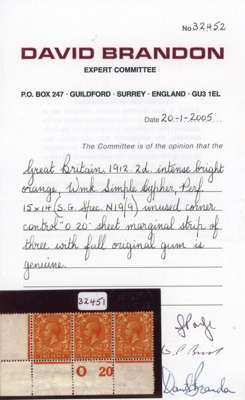 No. 32452
DAVID BRANDON
EXPERT COMMITTEE
P.O. BOX 247 · GUILDFORD · SURREY · ENGLAND · GU3 1EL
Date 20-1-2005
The Committee is of the opinion that the
Great Britain 1912 2d. intense bright
orange, Wmk Simple Cypher, Perf.
15x14 (S.G. Spec. N19(9) unused corner
control "O 20" sheet marginal strip of
three with full original gum is
genuine.
32451
O 20
David Brandon